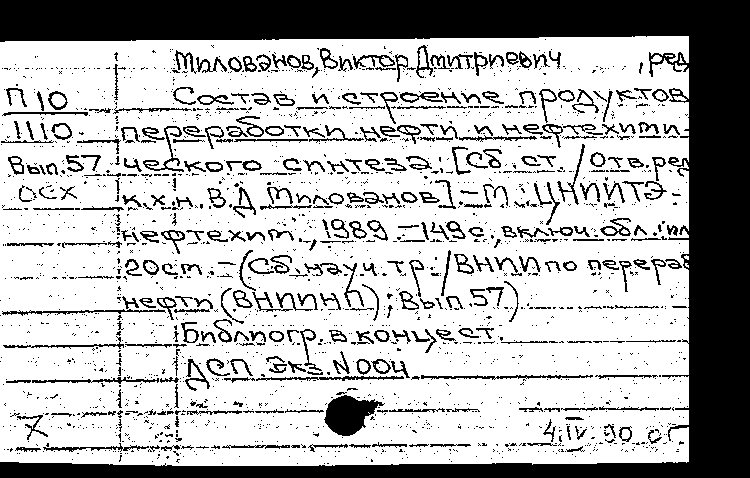 Милованов, Виктор Дмитриевич , ред
П 10 Состав и строение продуктов
1110. переработки нефти и нефтехими-
Вып. 57. ческого синтеза: [Сб. ст. / Отв. ред
ОСХ к.х.н. В.Д Милованов] – М.: ЦНИИТЭ-
нефтехим., 1989. – 149 с., включ. обл.: ил
20 см. – (Сб. науч. тр. / ВНИИ по перераб
нефти (ВНИИНП); Вып. 57)
Библиогр. в конце ст.
ДСП. Экз. N 004
X 4.IV.90 ог